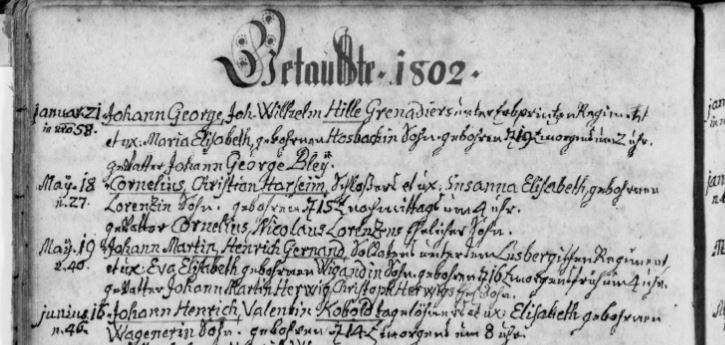 Getaufte. 1802.
Januar 21 Johann George, Joh. Wilhelm Hille Grenadiers unter Erbprintzen Regiment
in nro 58. et ux: Maria Elisabeth, gebohrnen Sohn. gebohren d 19t morgens um 2 uhr.
gevatter Johann George Bley.
May. 18 Cornelius, Christian Harseim, Schloßers et ux: Susanna Elisabeth, gebohrnen
n. 27. Lorentzin Sohn. gebohren d 15t nachmittags um 4 uhr.
gevatter Cornelius, Nicolaus Lorentzens Sohn.
May. 19 Johann Martin, Henrich Gernand, Soldatens unter dem Regiment,
n. 40. et ux: Eva Elisabeth gebohrnen Wigandin Sohn. gebohren d 16t morgens früh um 4 uhr.
gevatter Johann Martin Herwig, Christoph Herwigs Sohn.
junius. 16 Johann Henrich, Valentin Kobold tagelöhners et ux: Elisabeth gebohrnen
n. 46. Wagenerin Sohn. gebohren d 14t morgens um 8 uhr.